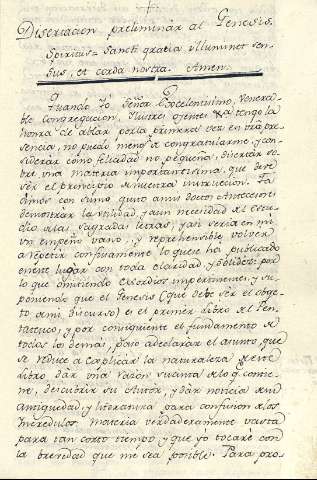 Disertacion preliminàr al Genesis.
Spiritus-Sancti gratia illuminet sen-
sus, et corda nostra. Amen.
Quando Yo Señor Excelentisimo, Venera-
ble Congregacion, Ilustres oyentes tengo la
honra de ablàr por la primera vez en
sencia, no puedo menos congratularme, y con-
siderar como felicidad no pequeña, disertàr so-
bre una materia importantisima, que
ser el principio nuestra instruccion.
con sumo gusto à mi docto Antecesor
demostràr la utilidad, y aun necesidad
las sagradas letras, y asi sería en mi
un empeño vano, y reprehensible volver
à repetir confusamente lo que ha publicado
en este lugar con toda claridad, y solidèz: por
lo que omitiendo exordios impertinentes, y su-
poniendo que el Genesis (que debe ser el obge-
to mi discurso) es el primer libro Pen-
tateuco, y por consiguiente el fundamento
todos los demàs, paso à declaràr el asunto, que
se reduce à explicàr la naturaleza este
libro dàr una razon suscinta lo q. contie-
ne, descubrìr su Autor, y dàr noticia
antiguedad, y literatura para confusion los
incredulos materia verdaderamente vasta
para tan corto tiempo, y que yo tocarè con
la brevedad que me sea posible. Para pro-